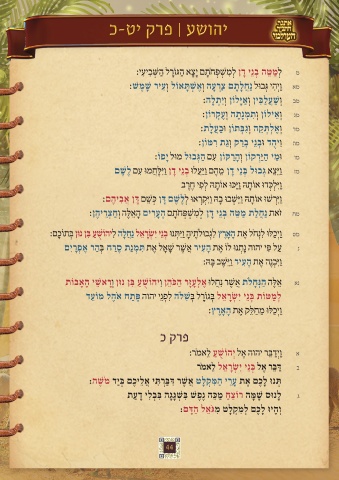 יהושע | פרק יט-כ
מ לְמַטֵּה בְנֵי דָן לְמִשְׁפְּחֹתָם יָצָא הַגּוֹרָל הַשְּׁבִיעִי:
מא וַיְהִי גְּבוּל נַחֲלָתָם צָרְעָה וְאֶשְׁתָּאוֹל וְעִיר שָׁמֶשׁ:
מב וְשַׁעֲלַבִּין וְאַיָּלוֹן וְיִתְלָה:
מג וְאֵילוֹן וְתִמְנָתָה וְעֶקְרוֹן:
מד וְאֶלְתְּקֵה וְגִבְּתוֹן וּבַעֲלָת:
מה וִיהֻד וּבְנֵי בְרַק וְגַת רִמּוֹן:
מו וּמֵי הַיַּרְקוֹן וְהָרַקּוֹן עִם הַגְּבוּל מוּל יָפוֹ:
מז וַיֵּצֵא גְבוּל בְּנֵי דָן מֵהֶם וַיַּעֲלוּ בְנֵי דָן וַיִּלָּחֲמוּ עִם לֶשֶׁם
וַיִּלְכְּדוּ אוֹתָהּ וַיַּכּוּ אוֹתָהּ לְפִי חֶרֶב
וַיִּרְשׁוּ אוֹתָהּ וַיֵּשְׁבוּ בָהּ וַיִּקְרְאוּ לְלֶשֶׁם דָּן כְּשֵׁם דָּן אֲבִיהֶם:
מח זֹאת נַחֲלַת מַטֵּה בְנֵי דָן לְמִשְׁפְּחֹתָם הֶעָרִים הָאֵלֶּה וְחַצְרֵיהֶן:
מט וַיְכַלּוּ לִנְחֹל אֶת הָאָרֶץ לִגְבוּלֹתֶיהָ וַיִּתְּנוּ בְנֵי יִשְׂרָאֵל נַחֲלָה לִיהוֹשֻׁעַ בִּן נוּן בְּתוֹכָם:
נ עַל פִּי יהוה נָתְנוּ לוֹ אֶת הָעִיר אֲשֶׁר שָׁאָל אֶת תִּמְנַת סֶרַח בְּהַר אֶפְרָיִם
וַיִּבְנֶה אֶת הָעִיר וַיֵּשֶׁב בָּהּ:
נא אֵלֶּה הַנְּחָלֹת אֲשֶׁר נִחֲלוּ אֶלְעָזָר הַכֹּהֵן וִיהוֹשֻׁעַ בִּן נוּן וְרָאשֵׁי הָאָבוֹת
לְמַטּוֹת בְּנֵי יִשְׂרָאֵל בְּגוֹרָל בְּשִׁלֹה לִפְנֵי יהוה פֶּתַח אֹהֶל מוֹעֵד
וַיְכַלּוּ מֵחַלֵּק אֶת הָאָרֶץ:
פרק כ
א וַיְדַבֵּר יהוה אֶל יְהוֹשֻׁעַ לֵאמֹר:
ב דַּבֵּר אֶל בְּנֵי יִשְׂרָאֵל לֵאמֹר
תְּנוּ לָכֶם אֶת עָרֵי הַמִּקְלָט אֲשֶׁר דִּבַּרְתִּי אֲלֵיכֶם בְּיַד מֹשֶׁה:
ג לָנוּס שָׁמָּה רוֹצֵחַ מַכֵּה נֶפֶשׁ בִּשְׁגָגָה בִּבְלִי דָעַת
וְהָיוּ לָכֶם לְמִקְלָט מִגֹּאֵל הַדָּם:
44